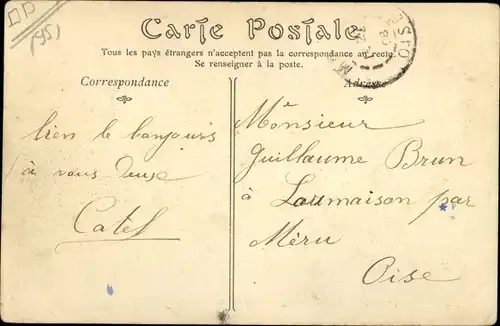 (95)
Carte Postale
Tous les pays étrangers n'acceptent pas la correspondance au recto.
Se renseigner à la poste.
Correspondance
Adresse
bien le bonjours
à vous deux
Catel
Monsieur
Guillaume Brun
à Laumaison par
Méru
Oise